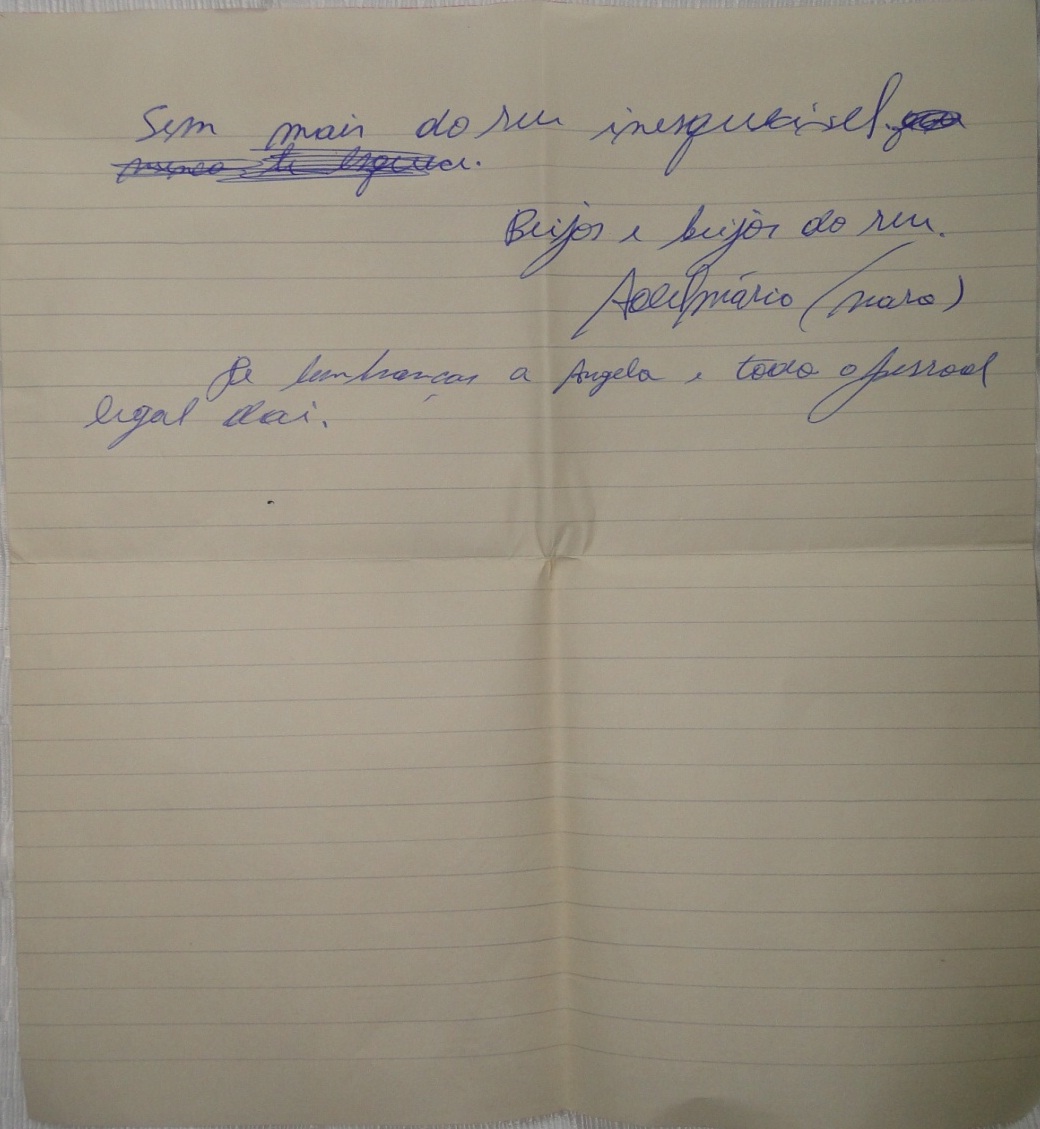 Sem mais do seu inesquecível.
nunca te esqueci.
Beijos e beijos do seu.
Adelmário (naro)
De lembranças a Angela e todo o pessoal
legal dai.